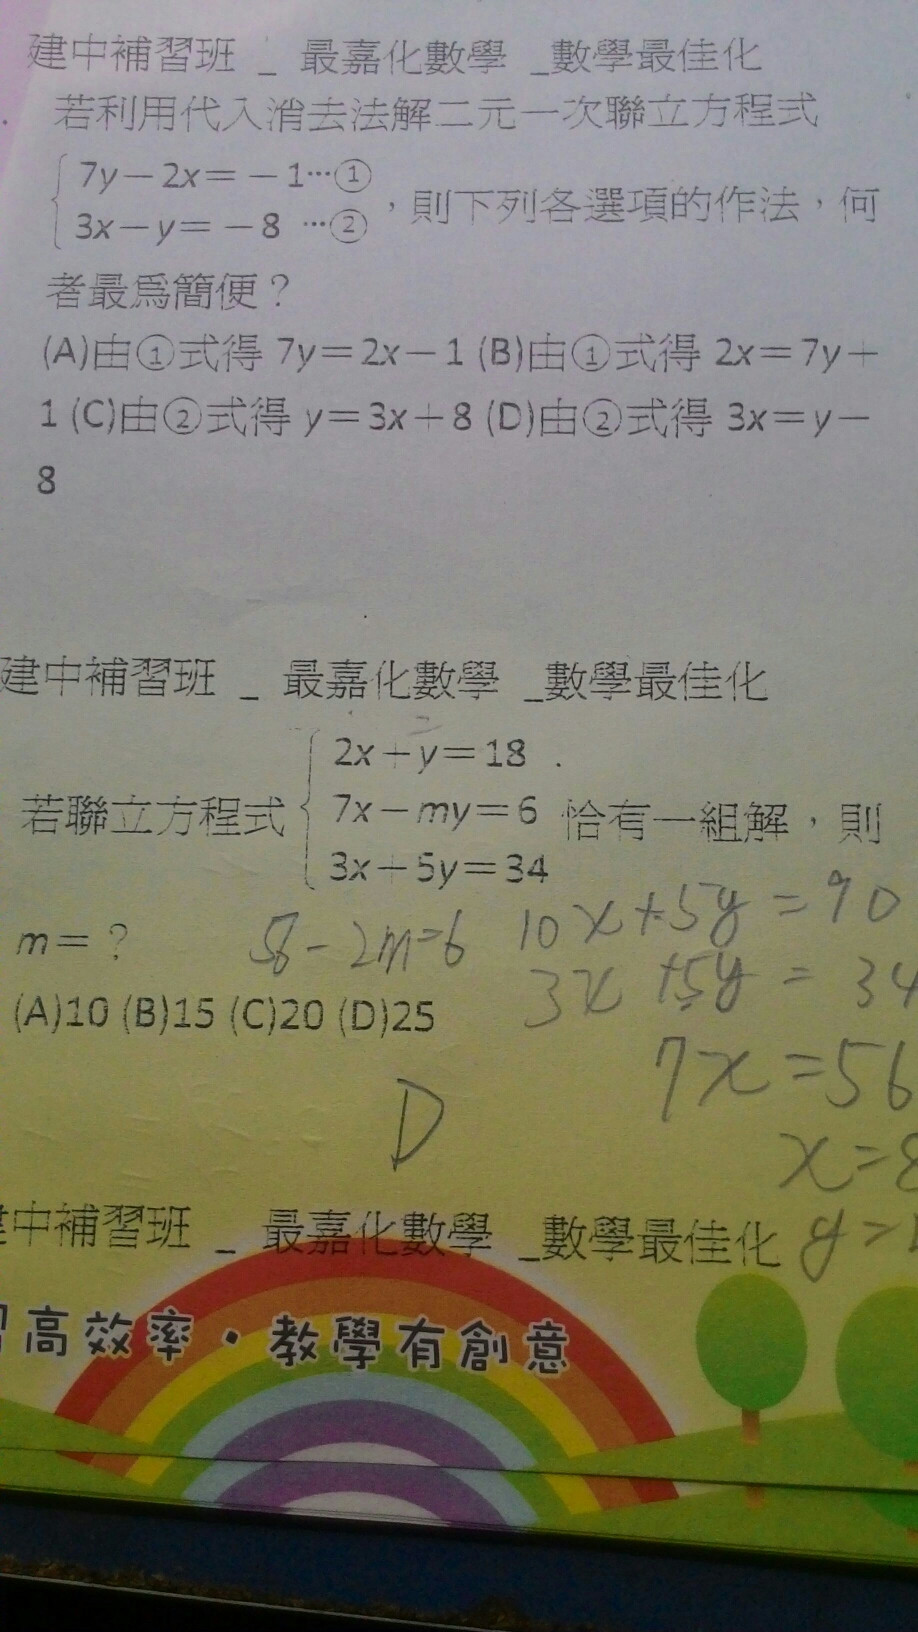 建中補習班 _ 最嘉化數學 _數學最佳化
若利用代入消去法解二元一次聯立方程式
7y－2x＝－1…①
3x－y＝－8 …②
，則下列各選項的作法，何
者最為簡便？
(A)由①式得 7y＝2x－1 (B)由①式得 2x＝7y＋
1 (C)由②式得 y＝3x＋8 (D)由②式得 3x＝y－
8
建中補習班 _ 最嘉化數學 _數學最佳化
2x＋y＝18
若聯立方程式 7x－my＝6 恰有一組解，則
3x＋5y＝34
m＝？
10x+5y=90
3x+5y=34
(A)10 (B)15 (C)20 (D)25
7x=56
D
x=8
中補習班 _ 最嘉化數學 _數學最佳化
y=
高效率・教學有創意